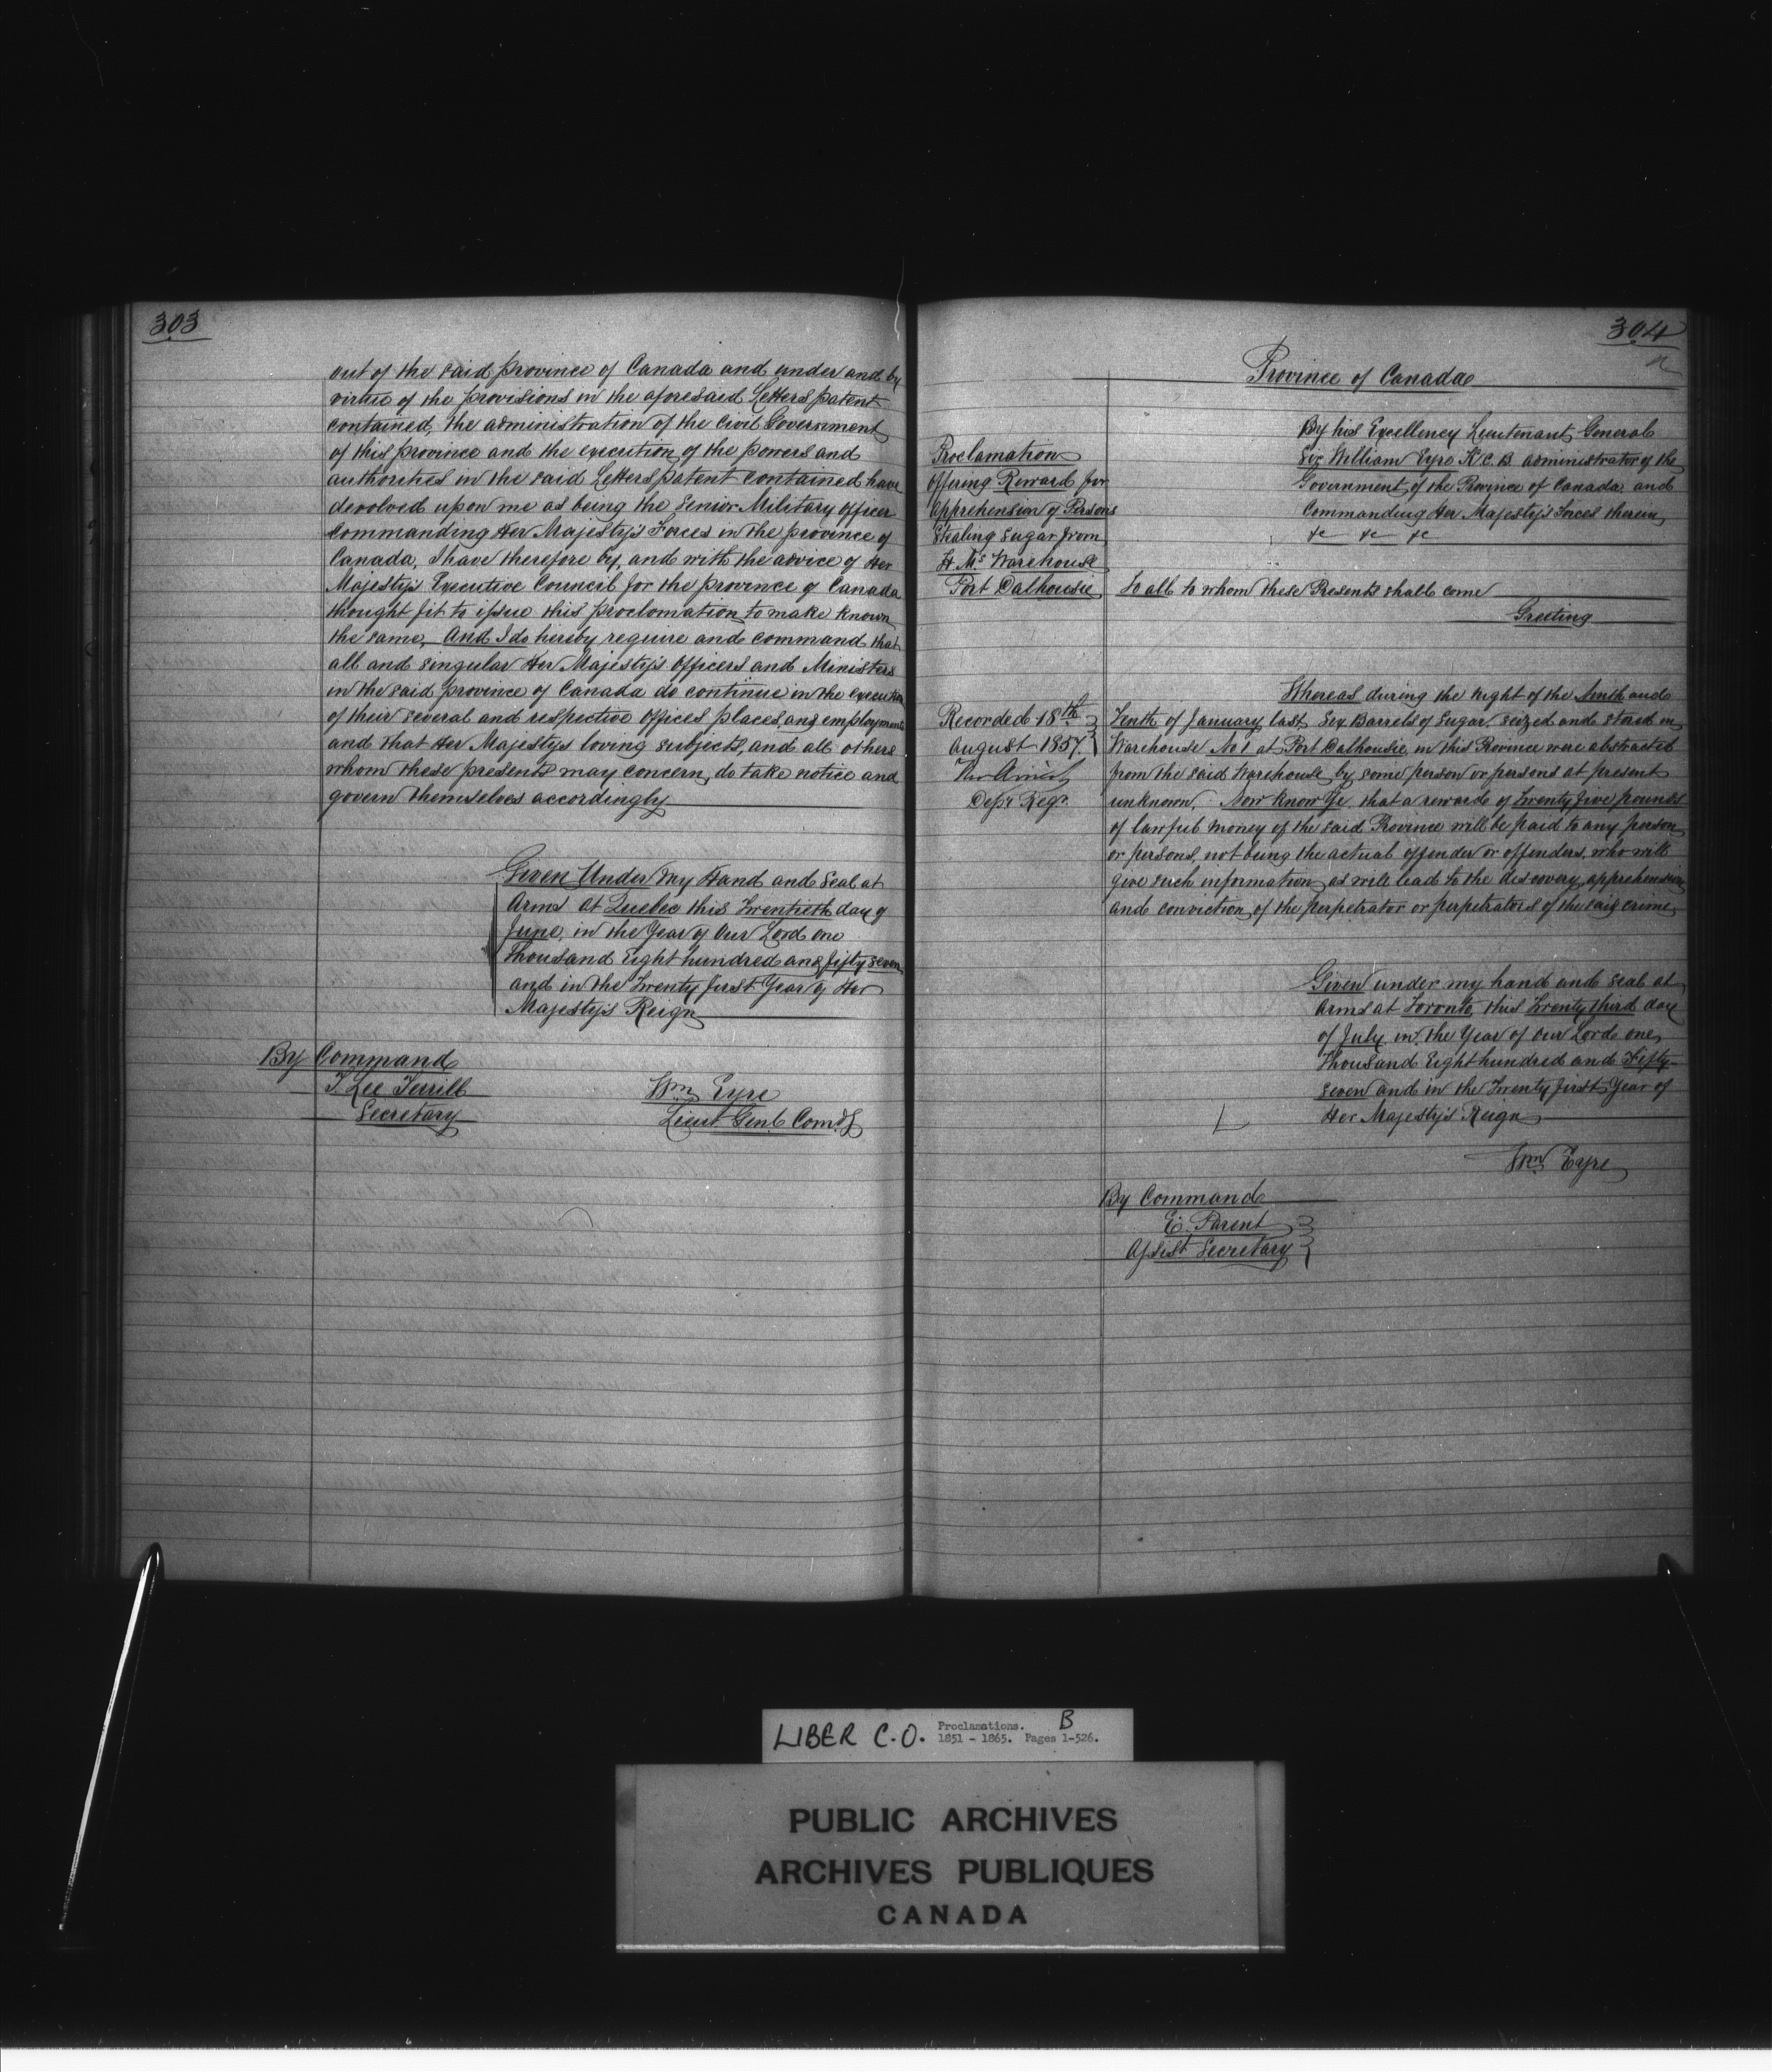 303
out of the said province of Canada and under and by
virtue of the provisions in the aforesaid Letters patent
contained, the administration of the Civil Government
of this province and the execution of the powers and
authorities in the said Letters patent contained have
devolved upon me as being the Senior Military Officer
Commanding Her Majesty's Forces in the province of
Canada, I have therefore by, and with the advice of Her
Majesty's Executive Council for the province of Canada
thought fit to issue this proclamation to make known
the same, And I do hereby require and command that
all and singular Her Majesty's Officers and Ministers
in the said province of Canada do continue in the execution
of their several and respective Offices places, and employments
and that Her Majesty's loving subjects, and all others
whom these presents may concern, do take notice and
govern themselves accordingly
Given Under My Hand and Seal at
Arms at Quebec this Twentieth day of
June, in the Year of Our Lord one
thousand Eight hundred and fifty seven
and in the Twenty first Year of Her
Majesty's Reign
By Command
T. Lee Terrill
Secretary
Wm Eyre
Lieut Genl Comdg
304
Province of Canada
By his Excellency Lieutenant General
Sir William Eyre K.C.B. administrator of the
Government of the Province of Canada, and
Commanding Her Majesty's Forces therein
&c &c &c
Proclamation
Offering Reward for
apprehension of Persons
Stealing Sugar from
H. Ms Warehouse
Port Dalhousie
To all to whom these Presents shall come
Greeting
Recorded 18th
August 1857.
Depy Regr
Whereas during the night of the Ninth and
Tenth of January last Six Barrels of Sugar seized and stored in
Warehouse No 1 at Port Dalhousie in this Province were abstracted
from the said Warehouse by some person or persons at present
unknown. Now Know Ye that a reward of Twenty five pounds
of lawful money of the said Province will be paid to any person
or persons, not being the actual offender or offenders, who will
give such information as will lead to the discovery, apprehension
and conviction of the perpetrator or perpetrators of the said crime
Given under my hand and seal at
Arms at Toronto, this Twenty third day
of July in the Year of our Lord one
thousand Eight hundred and Fifty-
seven and in the Twenty first Year of
Her Majesty's Reign
Wm Eyre
By Command
E. Parent
Assist Secretary
LIBER C.O. Proclamations. B
1851 - 1865. Pages 1-526.
PUBLIC ARCHIVES
ARCHIVES PUBLIQUES
CANADA